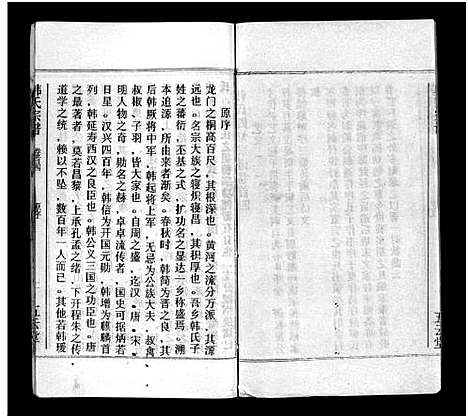 原序
龙门之桐高百尺，其根深也。黄河之流分万派，其源
远也。名宗大族之寝炽寝昌，其积厚也。吾乡韩氏子
姓之蕃衍，丕基之式，扩功名之显达一乡称盛焉。溯
本追源，所由来者渐矣。春秋时，韩简为晋之良，其
后韩厥将中军，韩起将上军，无忌为公族大夫，叔禽
叔椒，子羽，皆大家也。自周之盛，迄汉，唐，宋，
明人物之奇，勋名之赫，卓卓流传者，国史可据炳若
日星。汉兴四百年，韩信为开国元勋，韩增为麒麟首
列，韩延寿西汉之良臣也。韩公义三国之功臣也。唐
之最著者，莫若昌黎，上承孔孟之绪，下开程朱之传
道学之统，赖以不坠，数百年一人而已。其他若韩瑗
韩氏宗谱
原序
五云堂